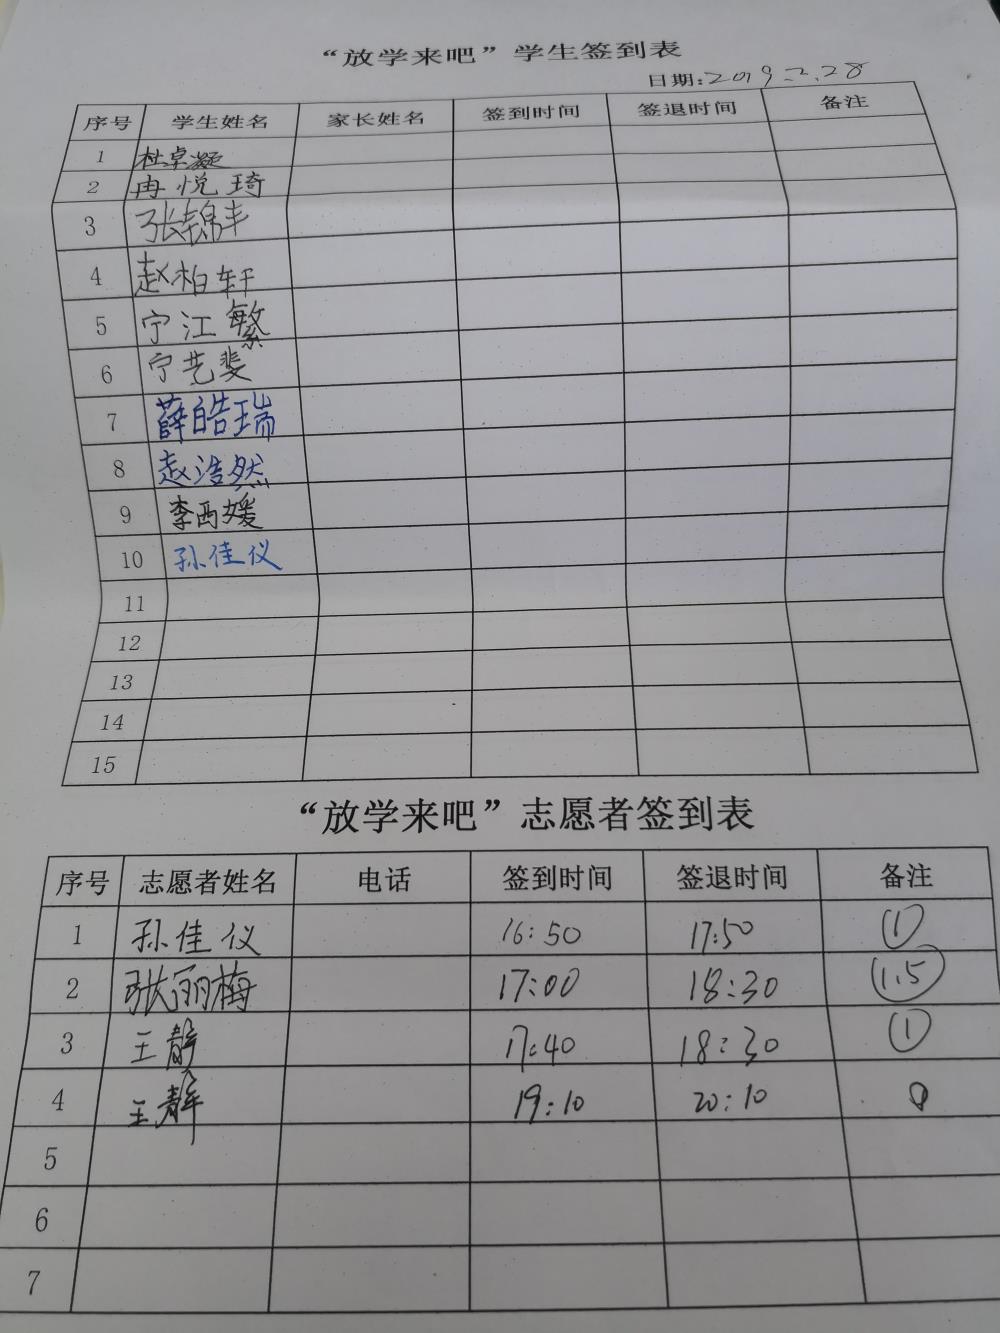 “放学来吧”学生签到表
日期:2019.2.28
序号 学生姓名 家长姓名 签到时间 签退时间 备注
1 杜卓凝
2 冉悦琦
3 张锦丰
4 赵柏轩
5 宁江繁
6 宁艺斐
7 薛皓瑞
8 赵浩然
9 李西媛
10 孙佳仪
11
12
13
14
15
“放学来吧”志愿者签到表
序号 志愿者姓名 电话 签到时间 签退时间 备注
1 孙佳仪 16:50 17:50 1
2 张丽梅 17:00 18:30 1.5
3 王静 17:40 18:30 1
4 王静 19:10 20:10
5
6
7